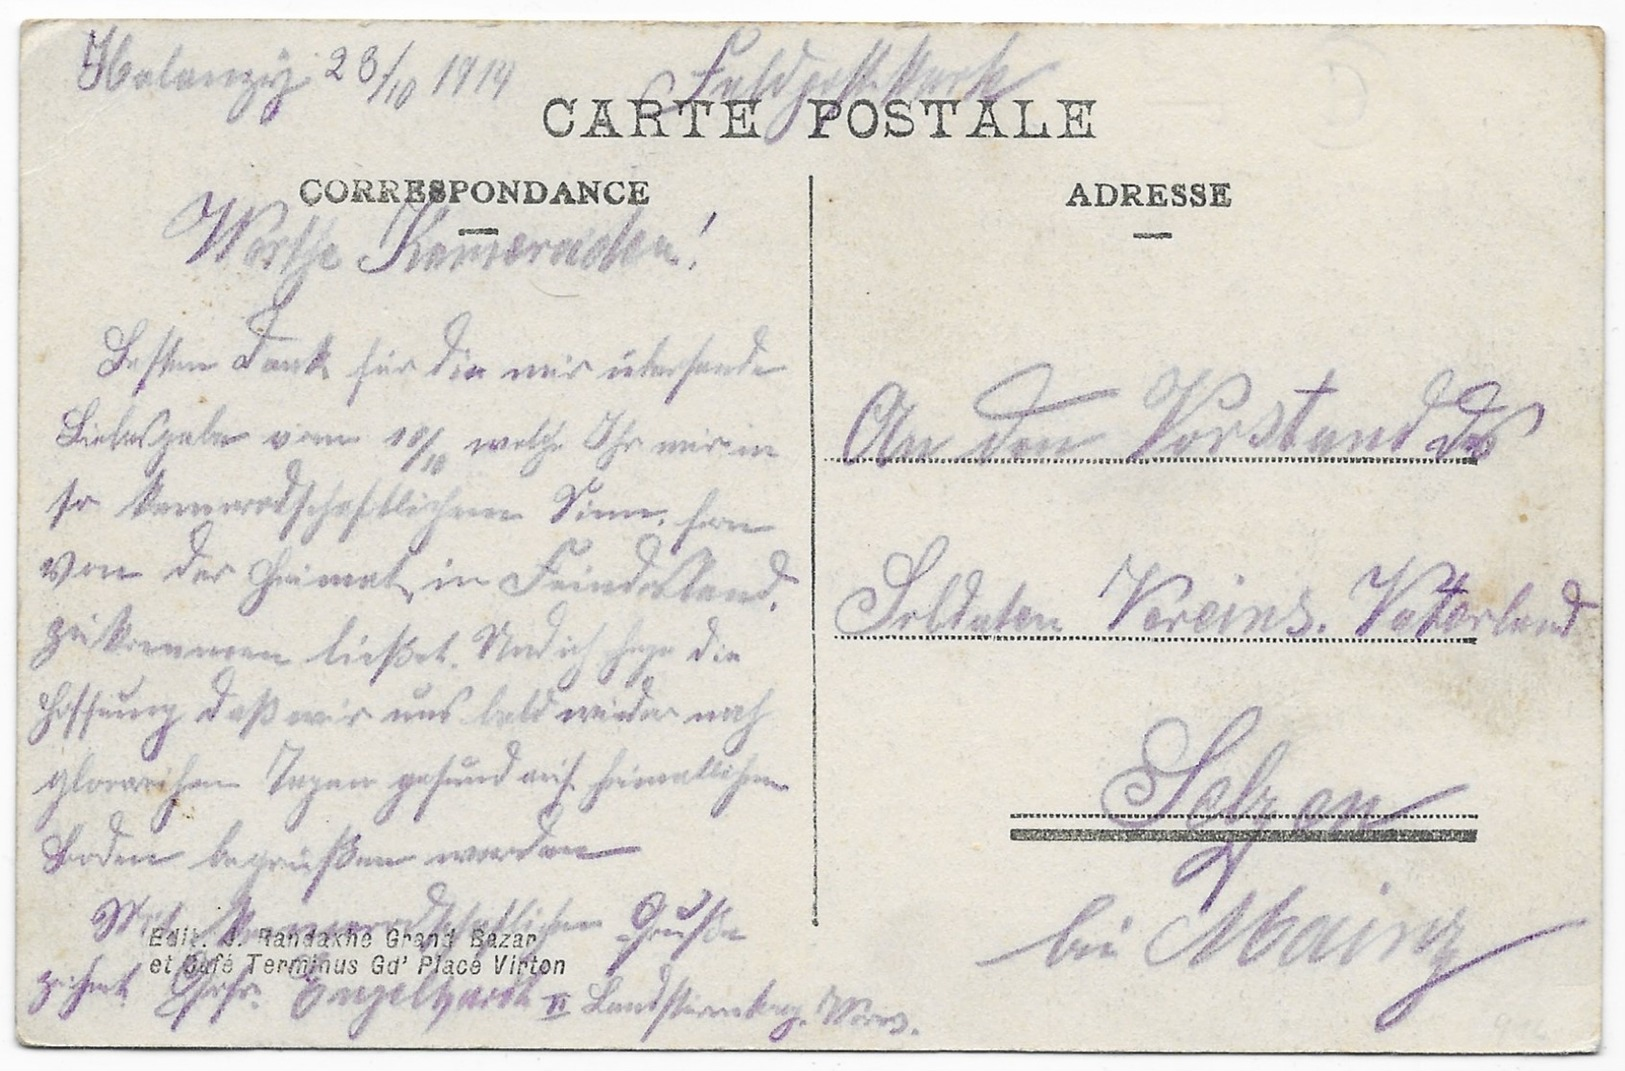 Halanzy 23/10 1914 Feldpostkarte
CARTE POSTALE
CORRESPONDANCE
Werthe Kameraden!
Besten Dank für die mir übersande
Liebesgabe vom 10/10 welche Ihr mir in
so kameradschaftlichem Sinn, fern
von der Heimat, in Feindesland,
zukommen ließet. Und ich hege die
Hoffnung daß wir uns bald wieder nach
glorreichen Tagen gesund auf heimatlichen
Boden begrüßen werden
Mit kameradschaftlichen Gruße
Edit. J. Randaxhe Grand Bazar
et Café Terminus Gd' Place Virton
zeichnet Gefr. Engelhardt II Landsturmbatg. Worms.
ADRESSE
An den Vorstand des
Soldaten Vereins. Vaterland
Selzen
bei Mainz